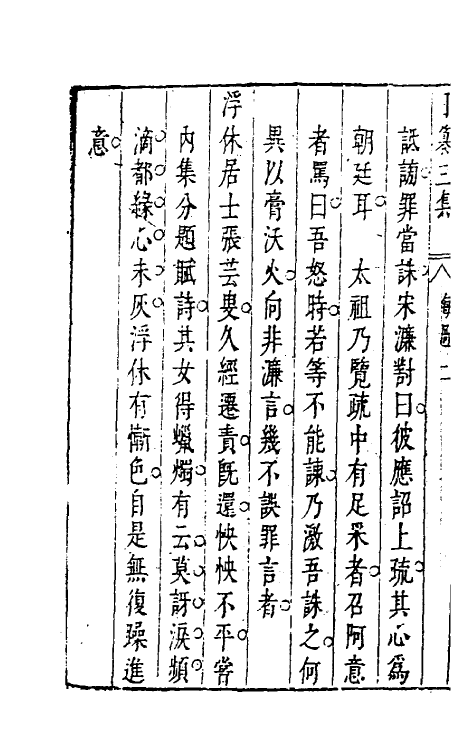 纂三集
詆謫罪當誅宋濂對曰彼應詔上疏其心為
朝廷耳　太祖乃覽疏中有足采者召阿意
者罵曰吾怒時若等不能諫乃激吾誅之何
異以膏沃火向非濂言幾不誤罪言者
浮休居士張芸叟久經遷責既還怏怏不平嘗
內集分題賦詩其女得蠟燭有云莫訝淚頻
滴都緣心未灰浮休有慚色自是無復躁進
意